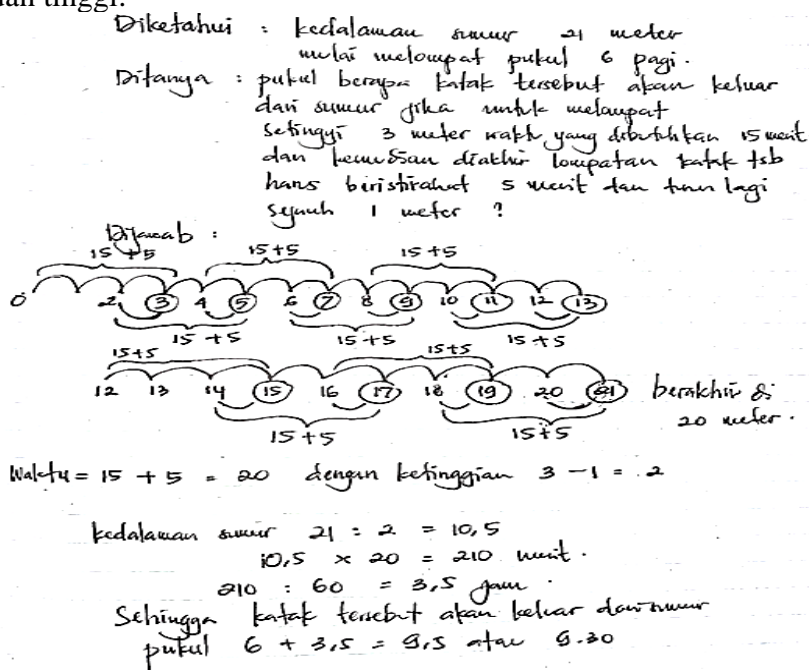 dan tinggi.
Diketahui : kedalaman sumur 21 meter
mulai melompat pukul 6 pagi.
Ditanya : pukul berapa katak tersebut akan keluar
dari sumur jika untuk melompat
setinggi 3 meter waktu yang dibutuhkan 15 menit
dan kemudian diakhir lompatan katak tsb
harus beristirahat 5 menit dan turun lagi
sejauh 1 meter ?
Dijawab :
15+5 15+5 15+5
0 2 3 4 5 6 7 8 9 10 11 12 13
15+5 15+5 15+5
15+5 15+5
12 13 14 15 16 17 18 19 20 21 berakhir di
20 meter.
15+5 15+5
Waktu = 15 + 5 = 20 dengan ketinggian 3 - 1 = 2
kedalaman sumur 21 : 2 = 10,5
10,5 x 20 = 210 menit.
210 : 60 = 3,5 jam.
Sehingga katak tersebut akan keluar dari sumur
pukul 6 + 3,5 = 9,5 atau 9.30